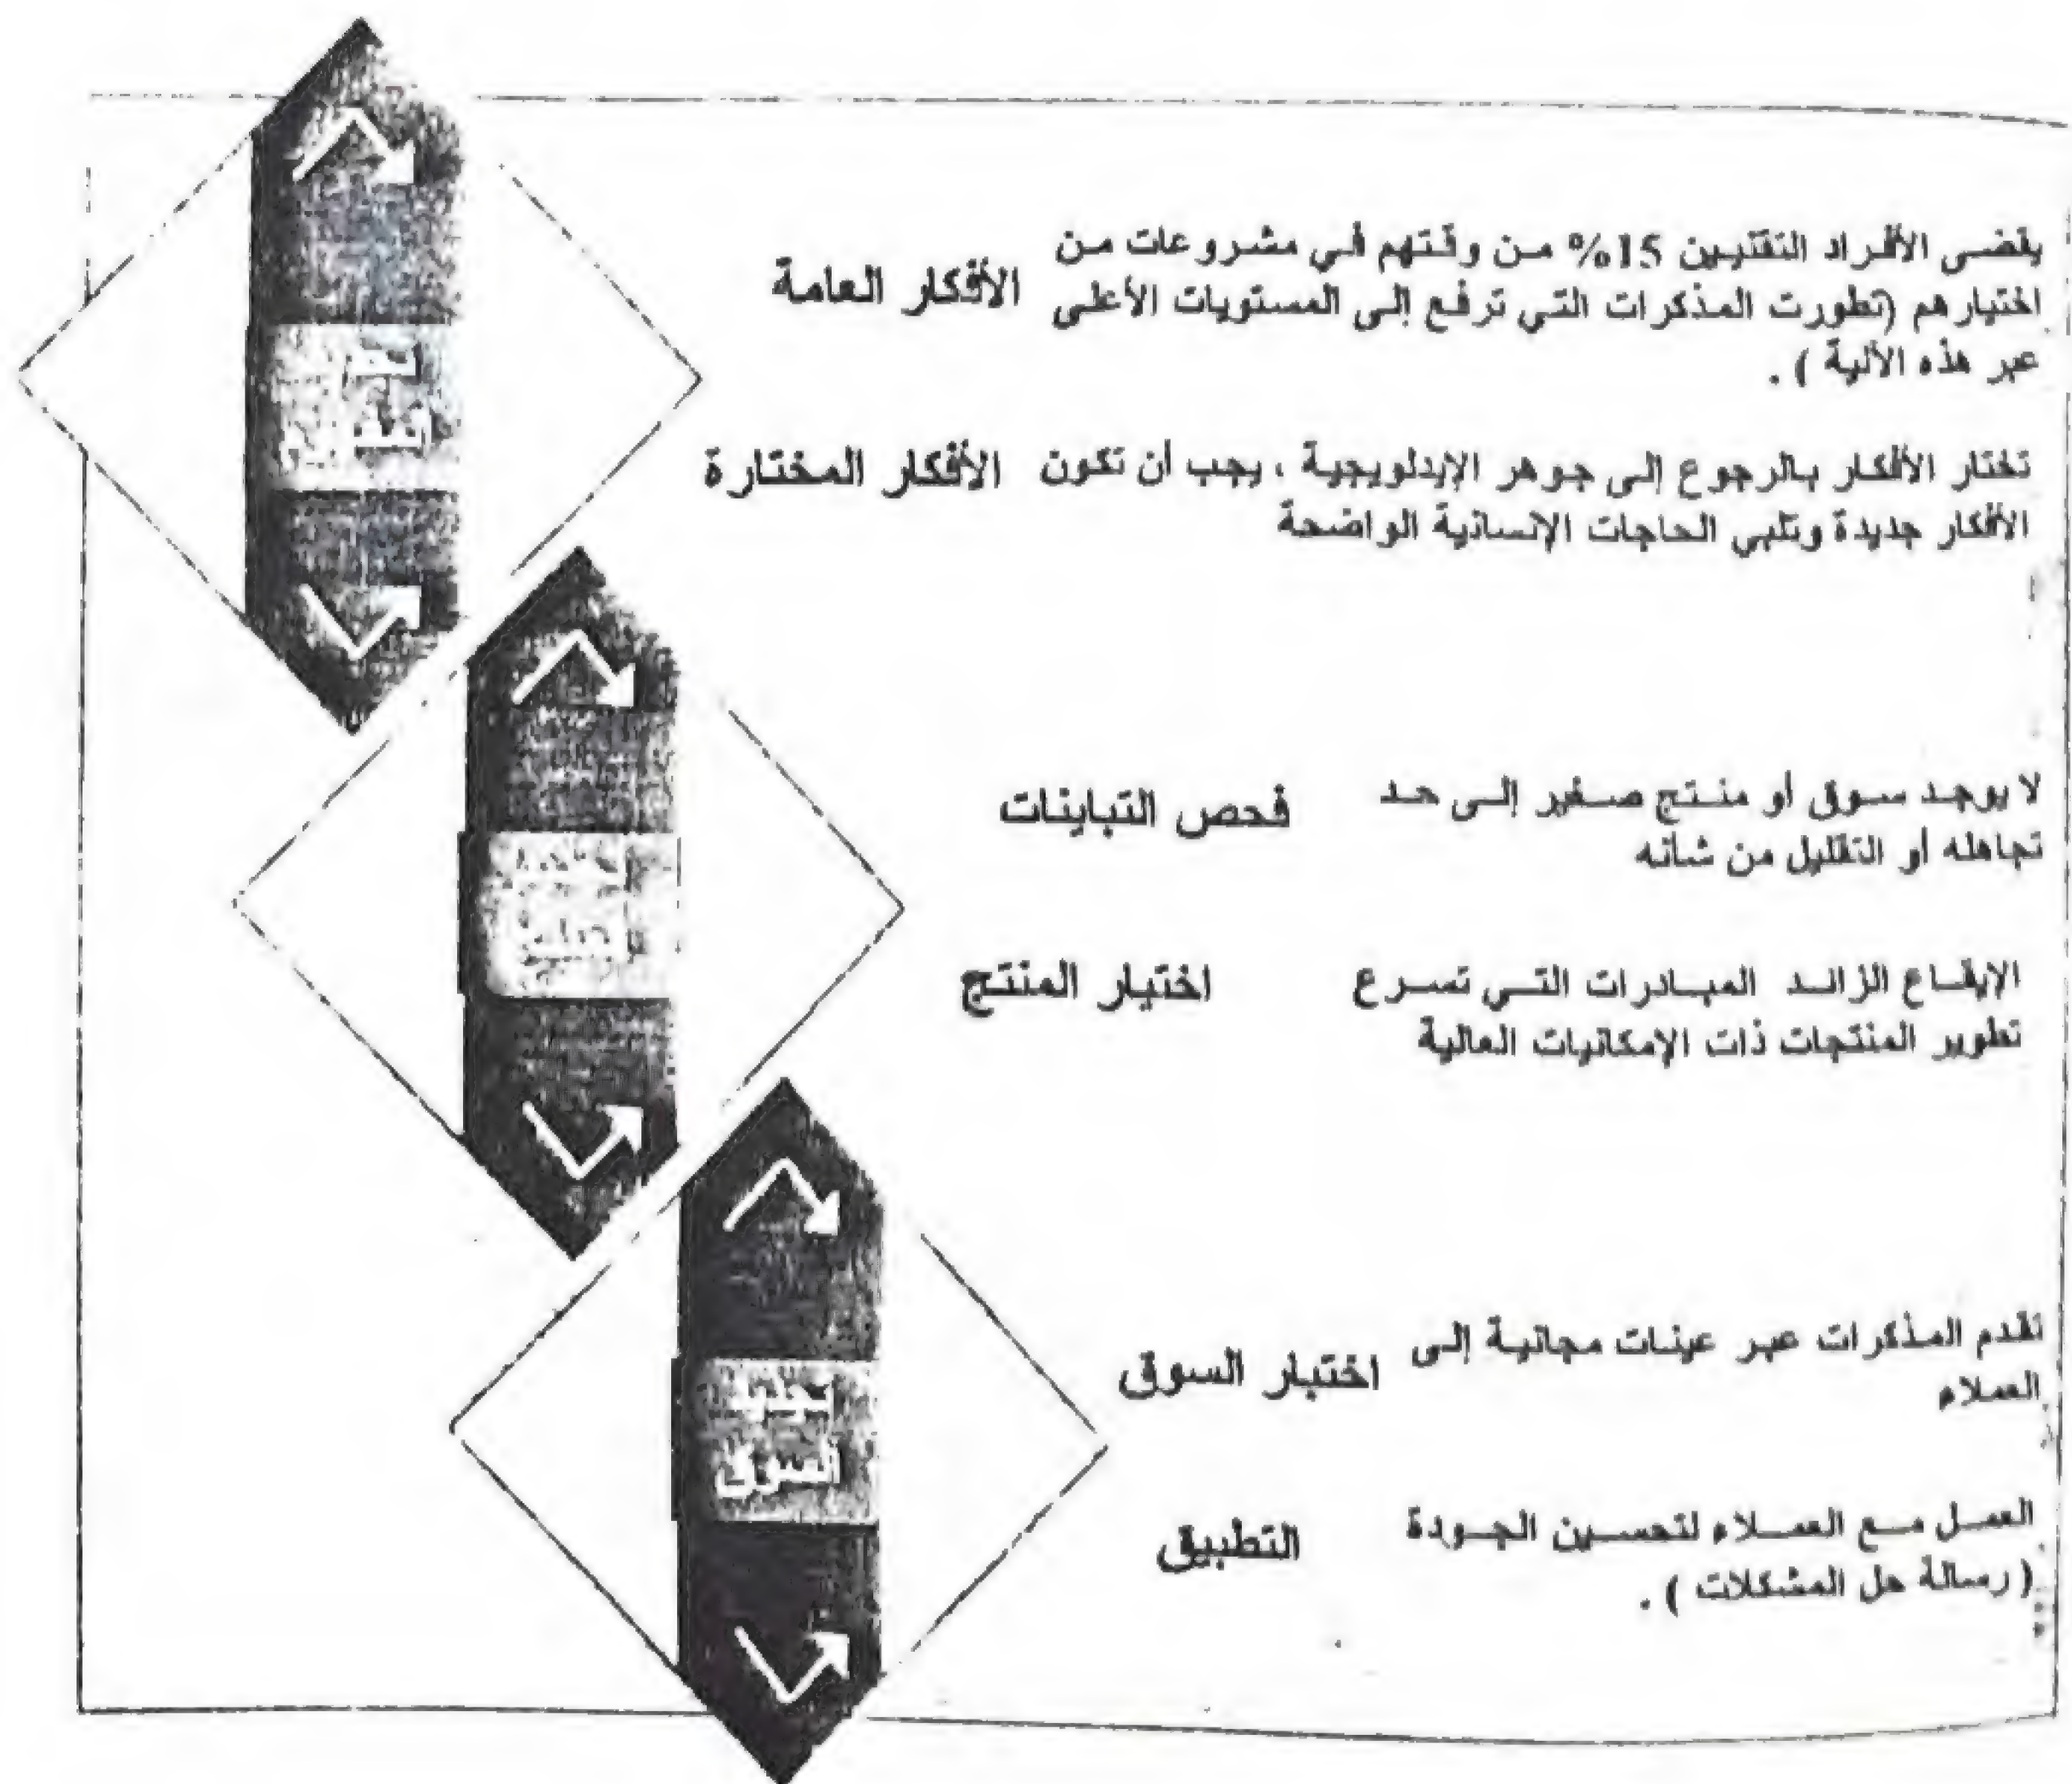 يقضى الأفراد التقنيين 15% من وقتهم في مشروعات من
اختيارهم (تطورت المذكرات التي ترفع إلى المستويات الأعلى
عبر هذه الألية ) .
الأفكار العامة
تختار الأفكار بالرجوع إلى جوهر الإيدلويجية ، يجب أن تكون
الأفكار جديدة وتلبي الحاجات الإنسانية الواضحة
الأفكار المختارة
لا يوجد سوق أو منتج صغير إلى حد
تجاهله أو التقليل من شأنه
فحص التباينات
الإيقاع الزائد المبادرات التي تسرع
تطوير المنتجات ذات الإمكانيات العالية
اختيار المنتج
تقدم المذكرات عبر عينات مجانية إلى
العملاء
اختبار السوق
العمل مع العملاء لتحسين الجودة
( رسالة هل المشكلات ) .
التطبيق
السوق